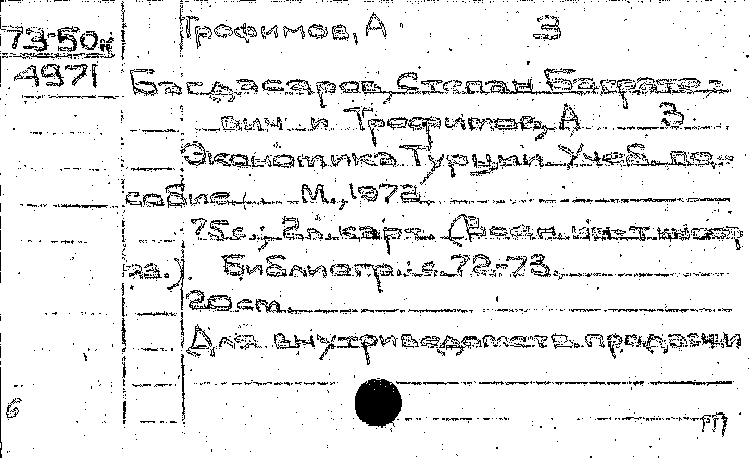 Трофимов, А З
73-50к
4971
Багдасаров, Степан Баграто-
вич и Трофимов, А З
Экономика Турции. Учеб. по-
собие. М., 1972.
75с.; 2л. карт. (Воен. ин-т иностр
яз.). Библиогр.: с. 72-73.
20 cm.
Для внутриведомств. продажи
6